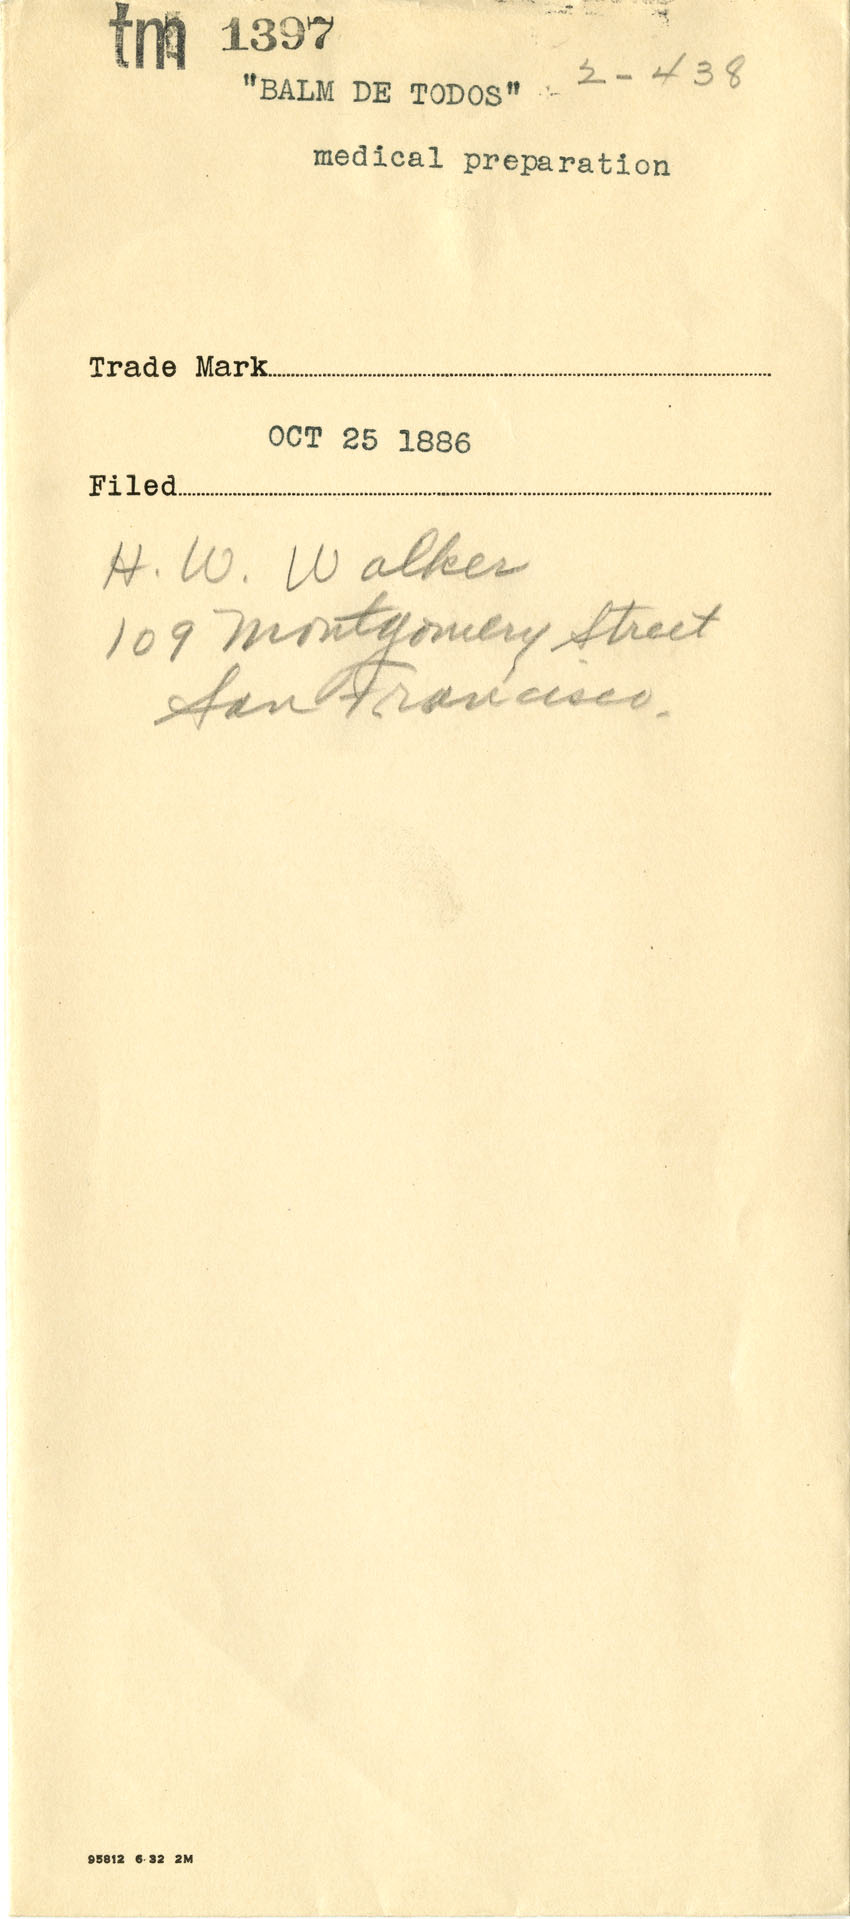 tm 1397
"BALM DE TODOS" 2-438
medical preparation
Trade Mark
OCT 25 1886
Filed
H. W. Walker
109 Montgomery Street
San Francisco.
95812 6-32 2M